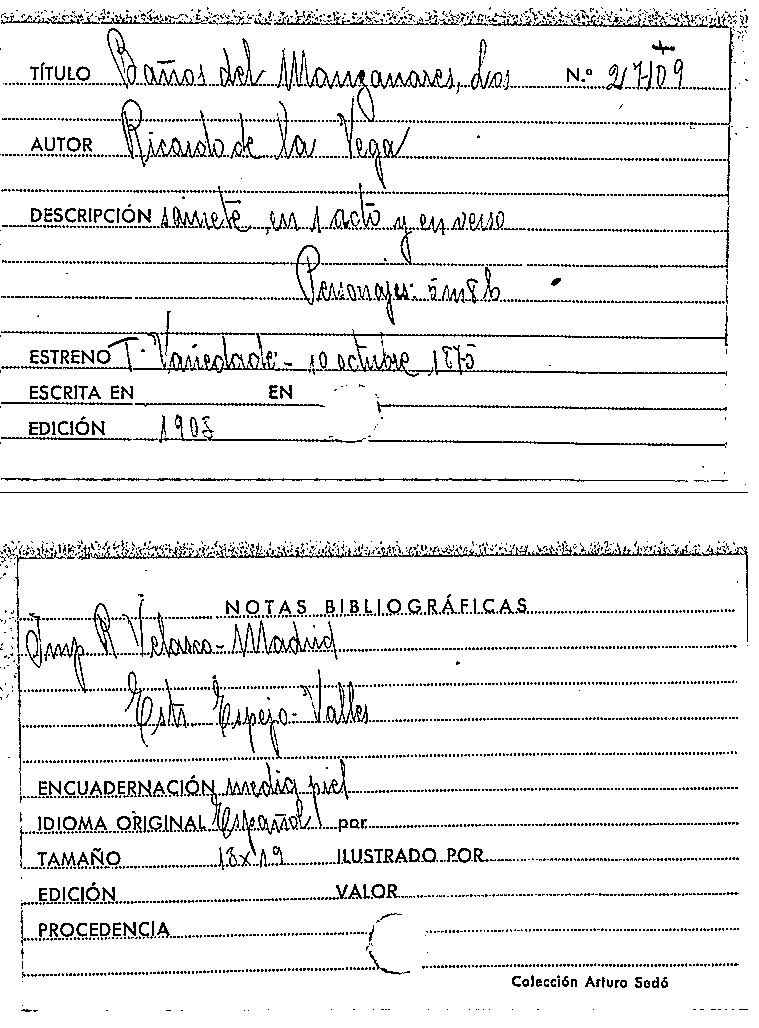 TÍTULO Baños del Manzanares, Los N.º 21709
AUTOR Ricardo de la Vega
DESCRIPCIÓN sainete, en 1 acto y en verso
Personajes: 5m 8h
ESTRENO T. Variedade - 10 octubre 1875
ESCRITA EN EN
EDICIÓN 1905
NOTAS BIBLIOGRÁFICAS
Imp R Velasco - Madrid
Estr. Espejo - Valles
ENCUADERNACIÓN media piel
IDIOMA ORIGINAL Español por
TAMAÑO 13x19 ILUSTRADO POR
EDICIÓN VALOR
PROCEDENCIA
Colección Arturo Sedó